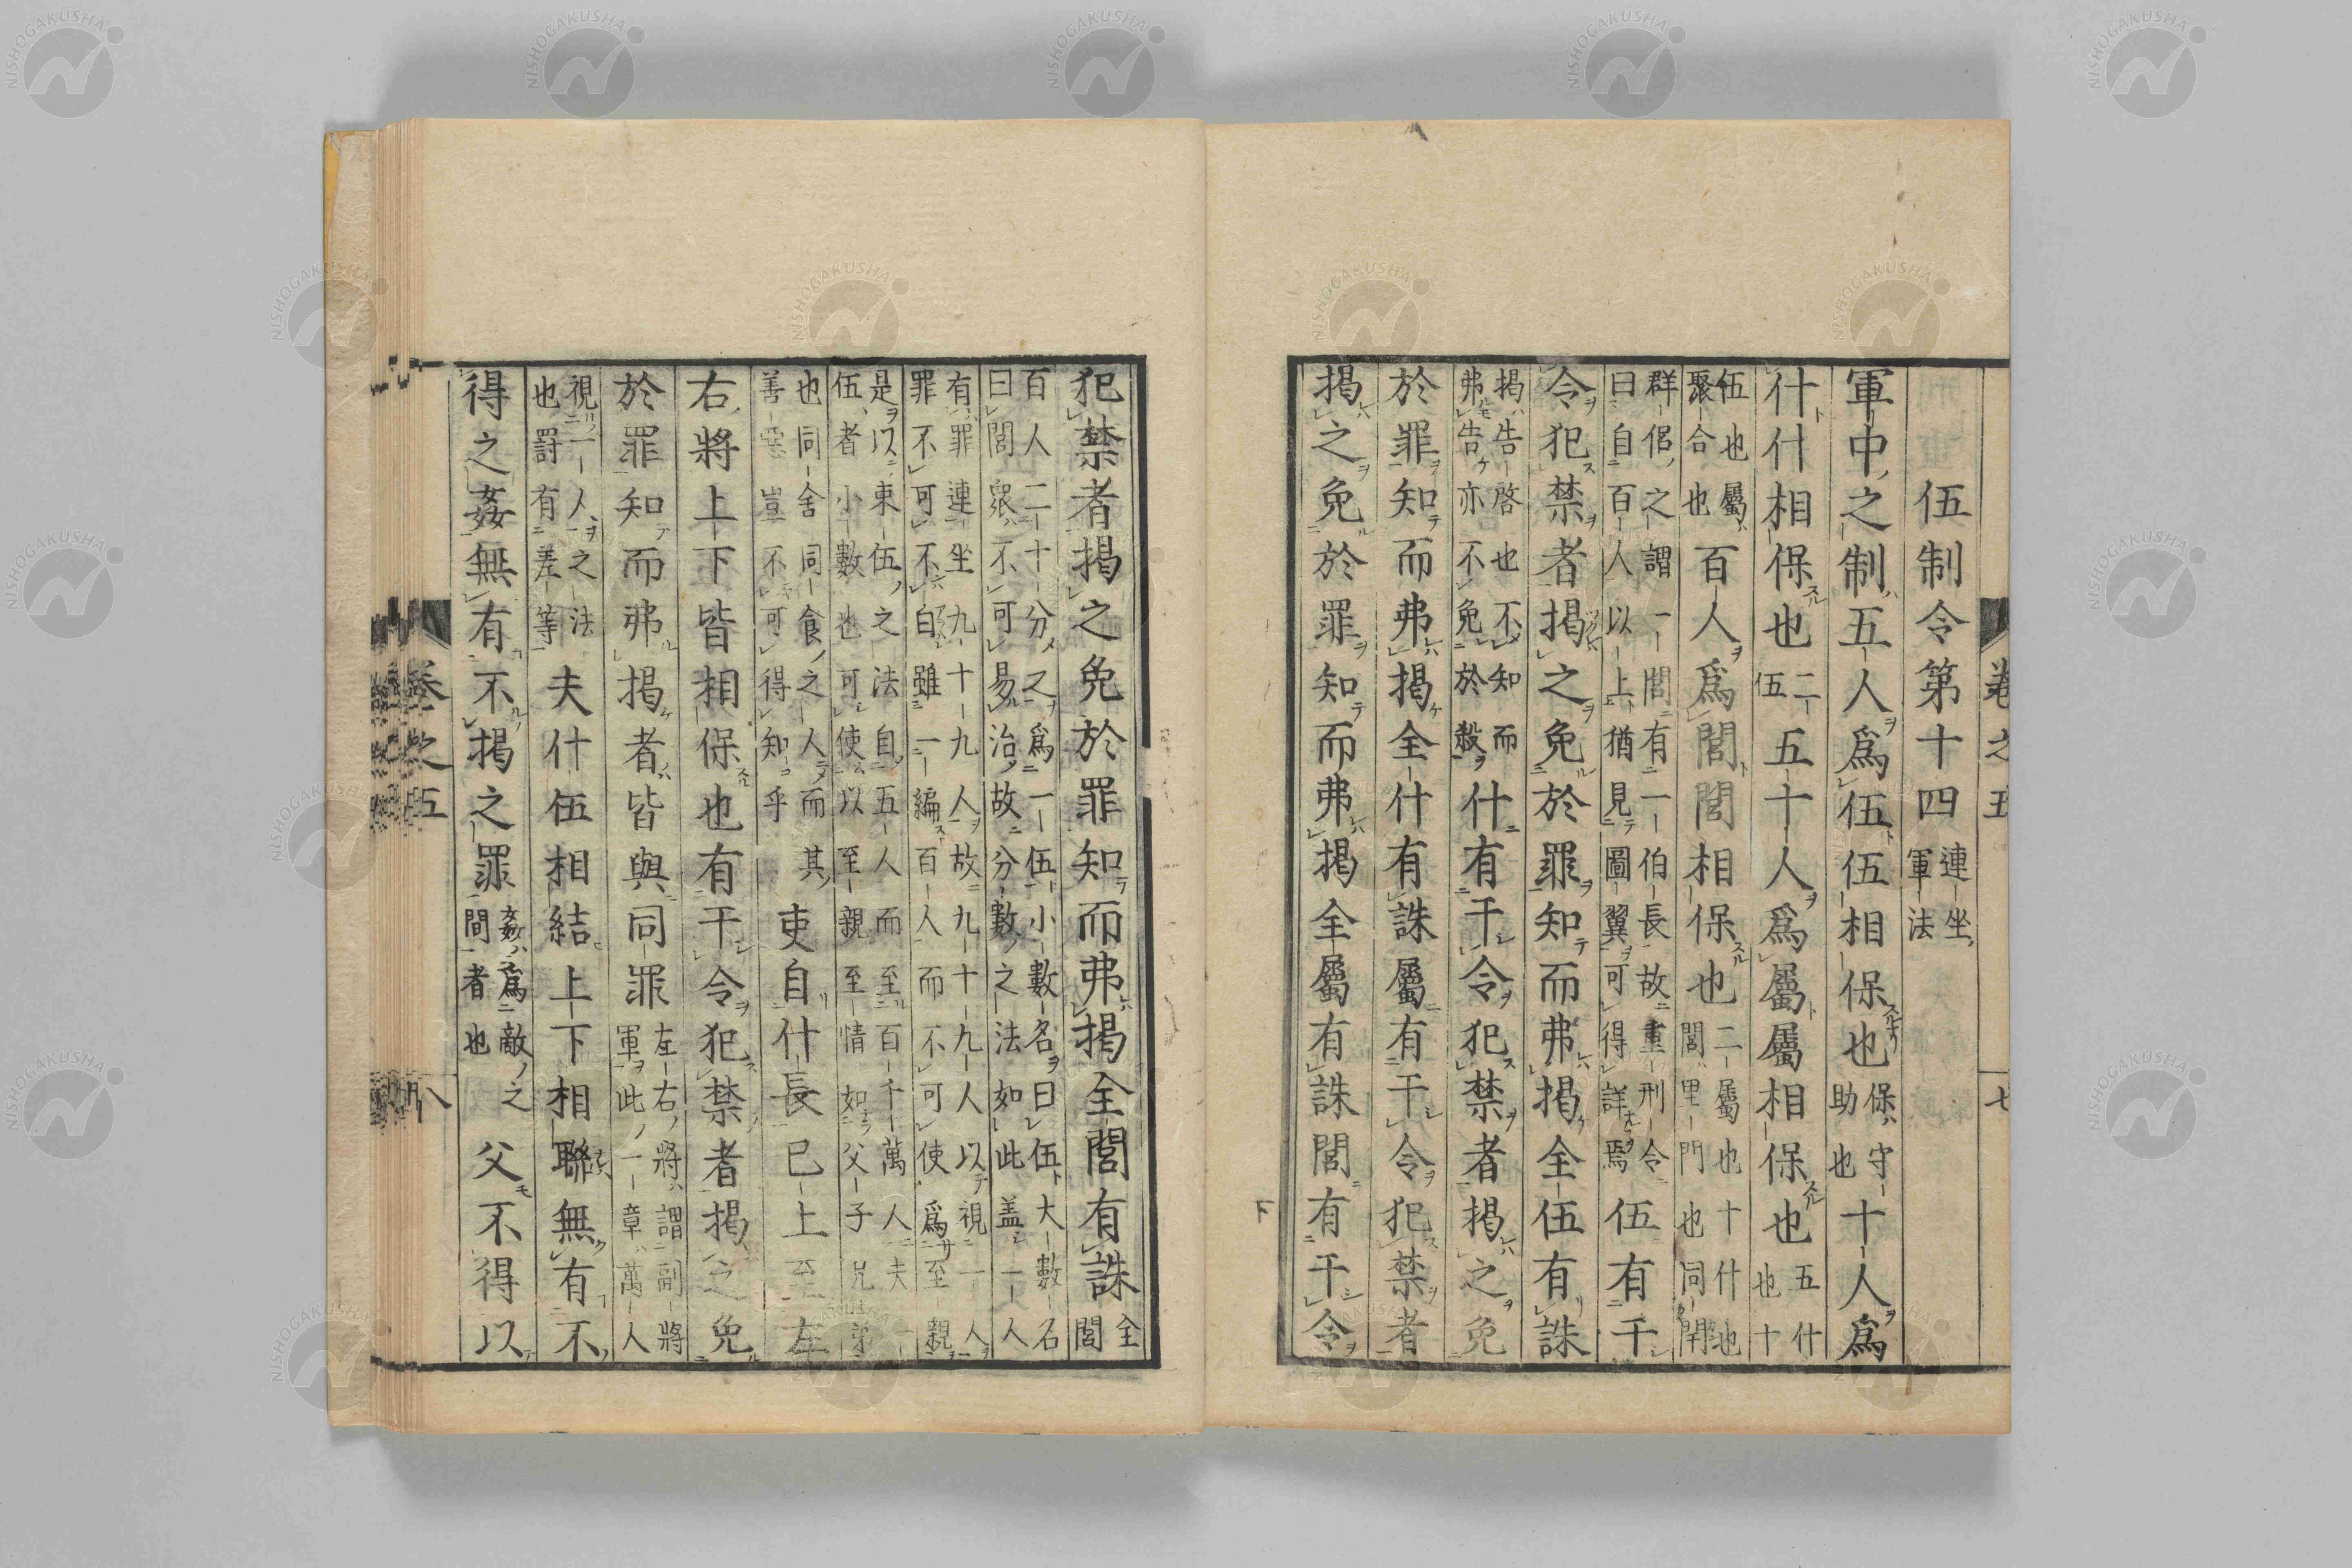 卷之五
七
伍制令第十四 連坐軍法
軍中之制五人爲伍伍相保也 保守助也 十人爲
什什相保也 二伍 五十人爲屬屬相保也 五什也十
伍也屬聚合也 百人爲閭閭相保也 二屬也十什也閭里門也同閈
群侶之謂一閭有二一伯長故重刑令曰自百人以上猶見圖翼可得詳焉 伍有干
令犯禁者揭之免於罪知而弗揭全伍有誅
揭告啓也不知而弗告亦不免於殺 什有干令犯禁者揭之免
於罪知而弗揭全什有誅屬有干令犯禁者
揭之免於罪知而弗揭全屬有誅閭有干令
犯禁者揭之免於罪知而弗揭全閭有誅 全閭
百人二十分又爲一伍小數名曰伍大數名曰閭衆不可易治故分數之法如此盖一人
有罪連坐九十九人故九十九人以視一人罪不可不白雖一編百人而不可使爲至親
是以束伍之法自五人而至百千萬人夫一伍者小數也可使以至親至情如父子兄弟
也同舍同食之人而其善惡豈不可得知乎 吏自什長已上至左
右將上下皆相保也有干令犯禁者揭之免
於罪知而弗揭者皆與同罪 左右將謂副將軍此一章萬人
視一人之法也罸有差等 夫什伍相結上下相聯無有不
得之姦無有不揭之罪 姦爲敵之間者也 父不得以
卷之五
八
下
NISHOGAKUSHA